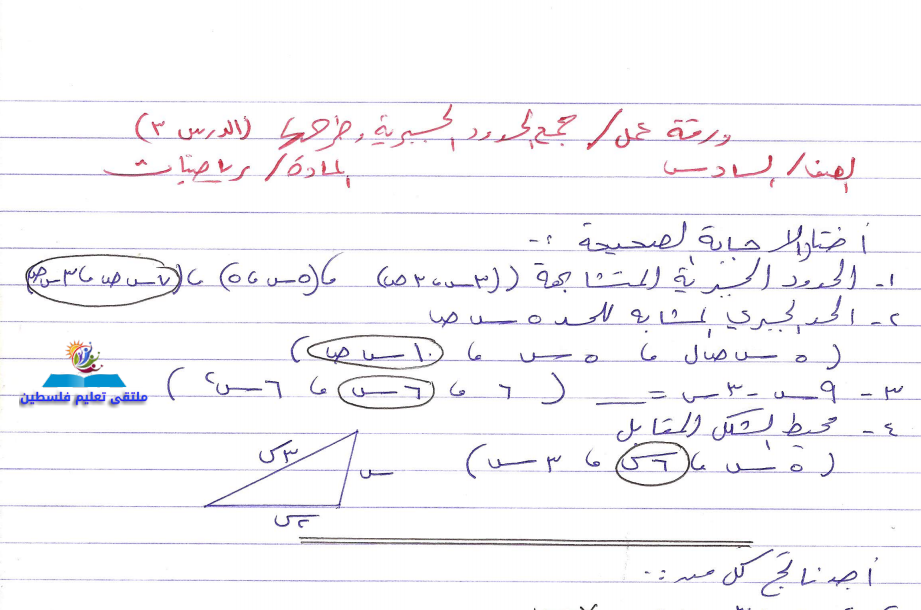 ورقة عمل / جمع الحدود الجبرية وطرحها (الدرس ٣)
الصف / السادس المادة / رياضيات
أختار الإجابة الصحيحة :-
١- الحدود الجبرية المتشابهة ((٣س ، ٣ص) ، (٥س ، ٥) ، (٧س ص ، ٣س ص))
٢- الحد الجبري المشابه للحد ٥ س ص
(٥ س ص ل ، ٥ س ، ١٠ س ص)
٣- ٩س - ٣س = __ (٦ ، ٦س ، ٦س٢)
٤- محيط الشكل المقابل
(٥س ، ٦س ، ٣س)
٣س
س
٢س
أجد ناتج كل من :-
ملتقى تعليم فلسطين